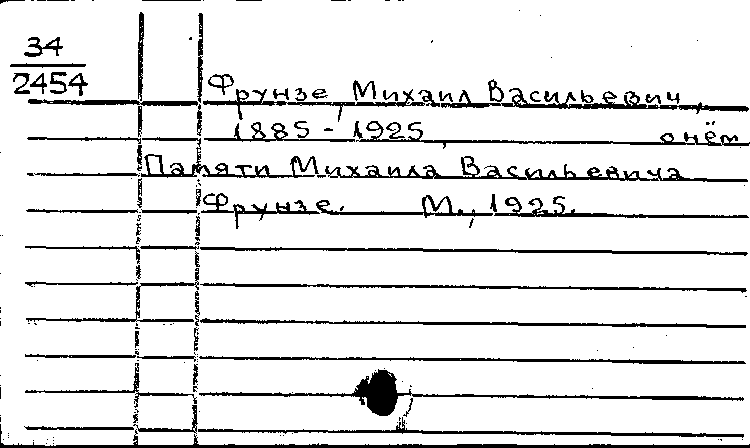 34
2454
Фрунзе, Михаил Васильевич,
1885 - 1925, о нём
Памяти Михаила Васильевича
Фрунзе. М., 1925.